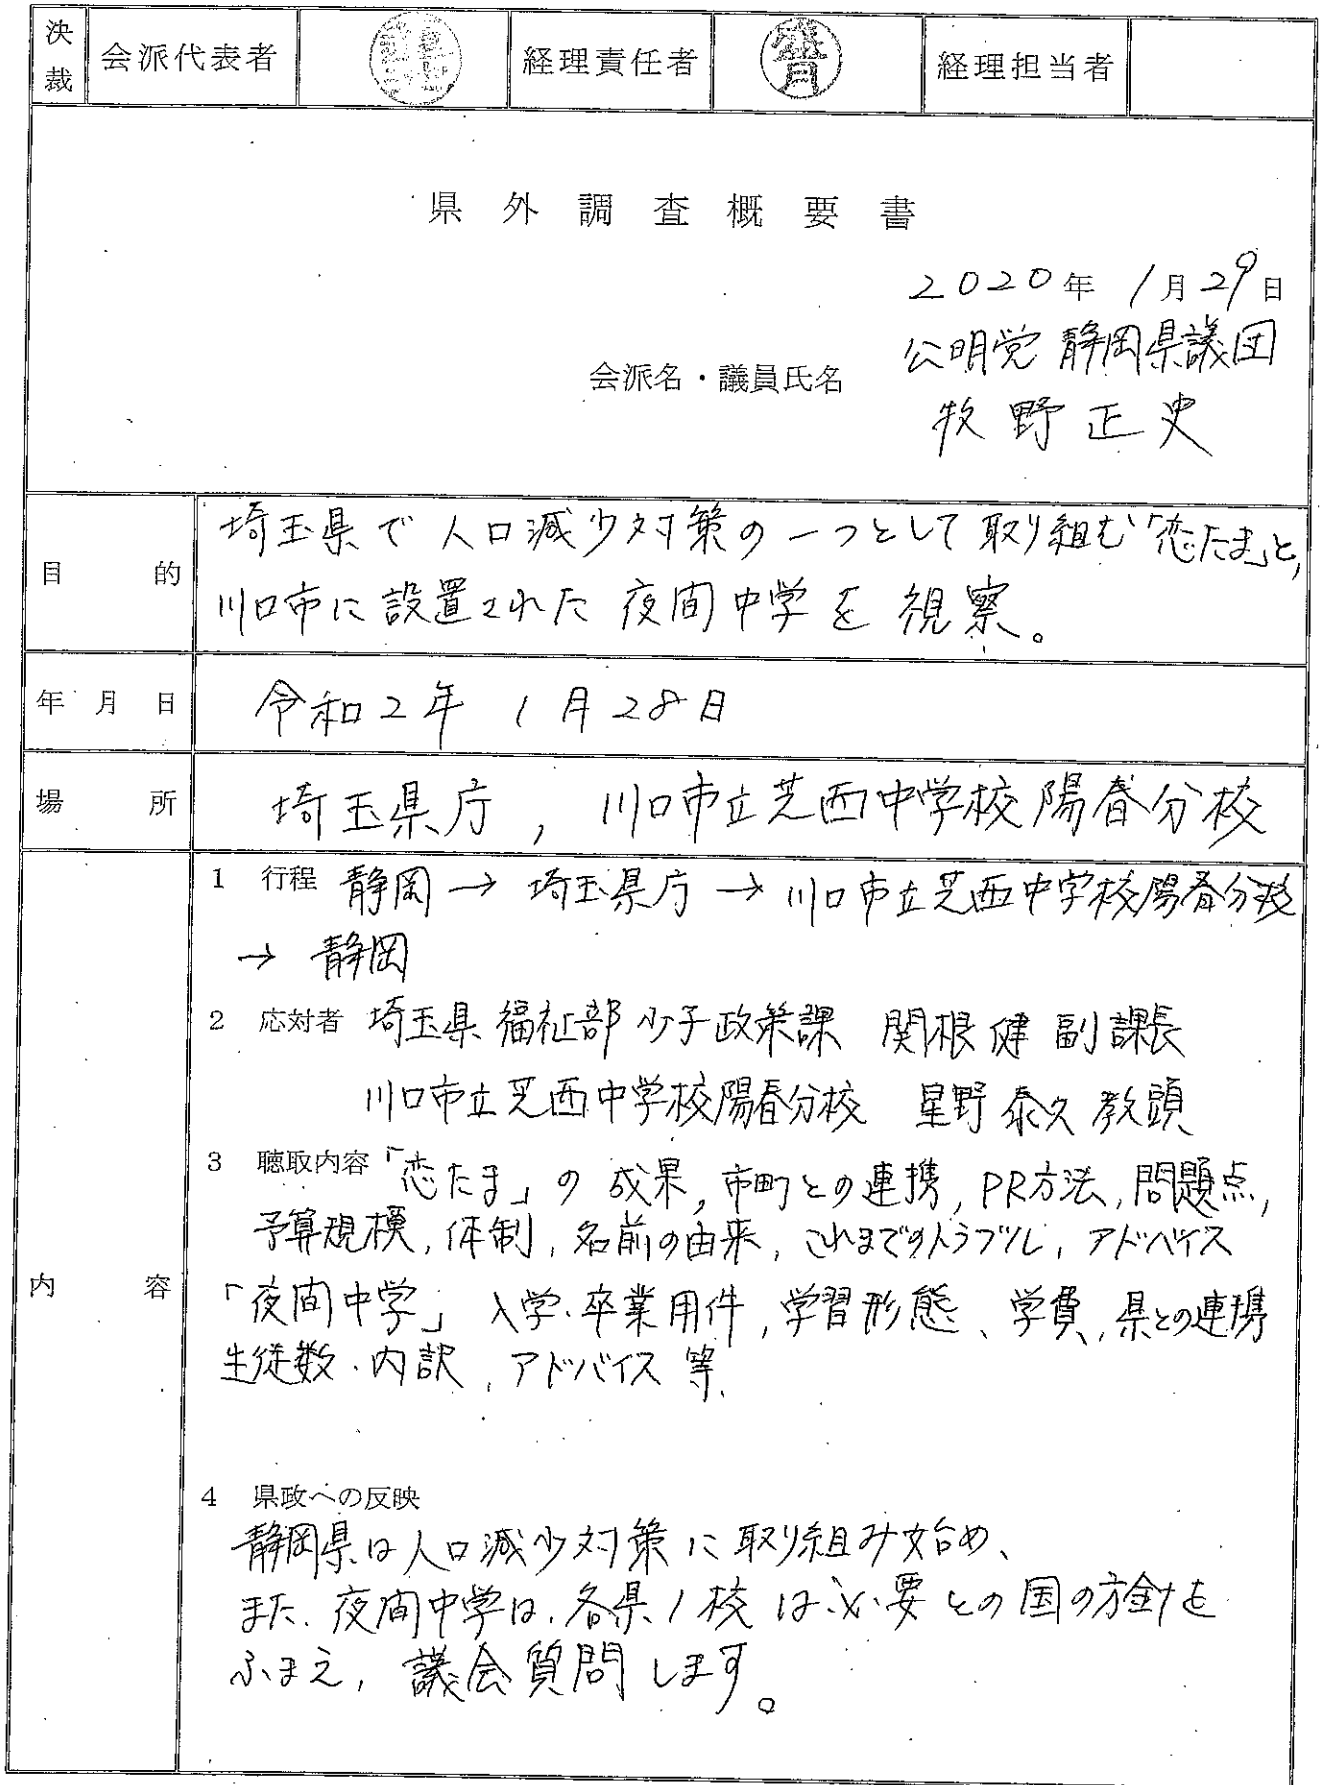 決裁 会派代表者 経理責任者 経理担当者
県外調査概要書
2020年 1月29日
公明党 静岡県議団
会派名・議員氏名
牧野正史
目的
埼玉県で人口減少対策の一つとして取り組む「恋たま」と,
川口市に設置された夜間中学を視察。
年月日 令和2年 1月28日
場所 埼玉県庁, 川口市立芝西中学校陽春分校
1 行程 静岡→埼玉県庁→川口市立芝西中学校陽春分校
→静岡
2 応対者 埼玉県福祉部少子政策課 関根健 副課長
川口市立芝西中学校陽春分校 星野泰久 教頭
3 聴取内容「恋たま」の成果, 市町との連携, PR方法, 問題点,
予算規模, 体制, 名前の由来, これまでのトラブル, アドバイス
内容
「夜間中学」 入学・卒業用件, 学習形態、学費, 県との連携
生徒数・内訳, アドバイス等.
4 県政への反映
静岡県は人口減少対策に取り組み始め、
また、夜間中学は、各県1校は必要との国の方針を
ふまえ, 議会質問します。